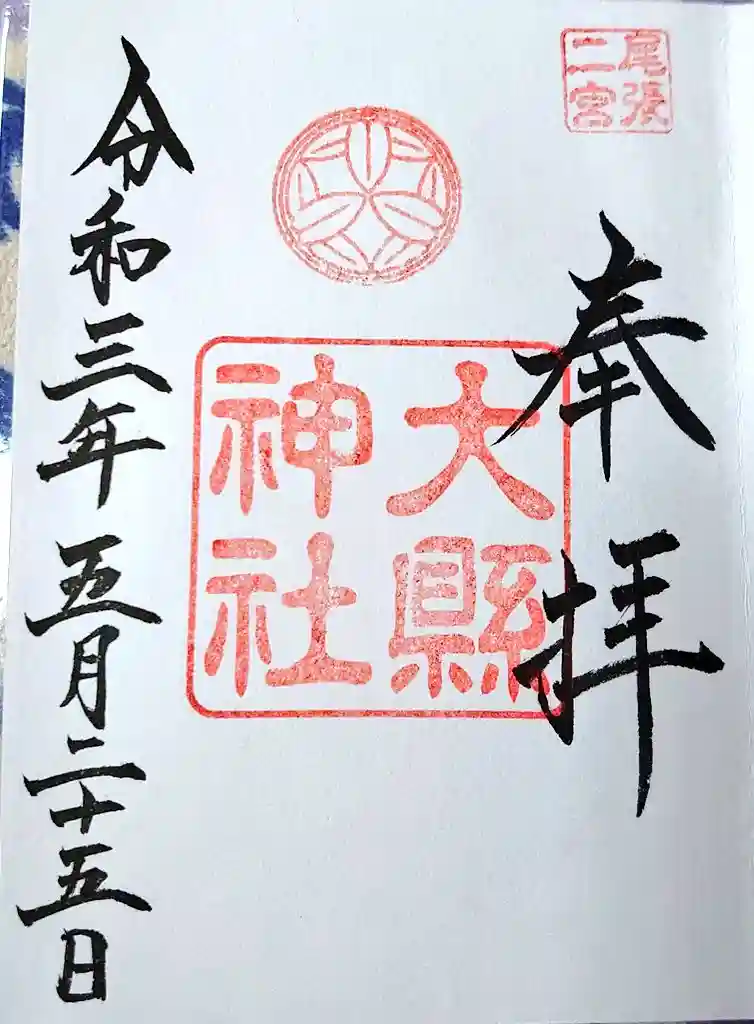 尾張
二宮
奉拝
大縣
神社
令和三年五月二十五日